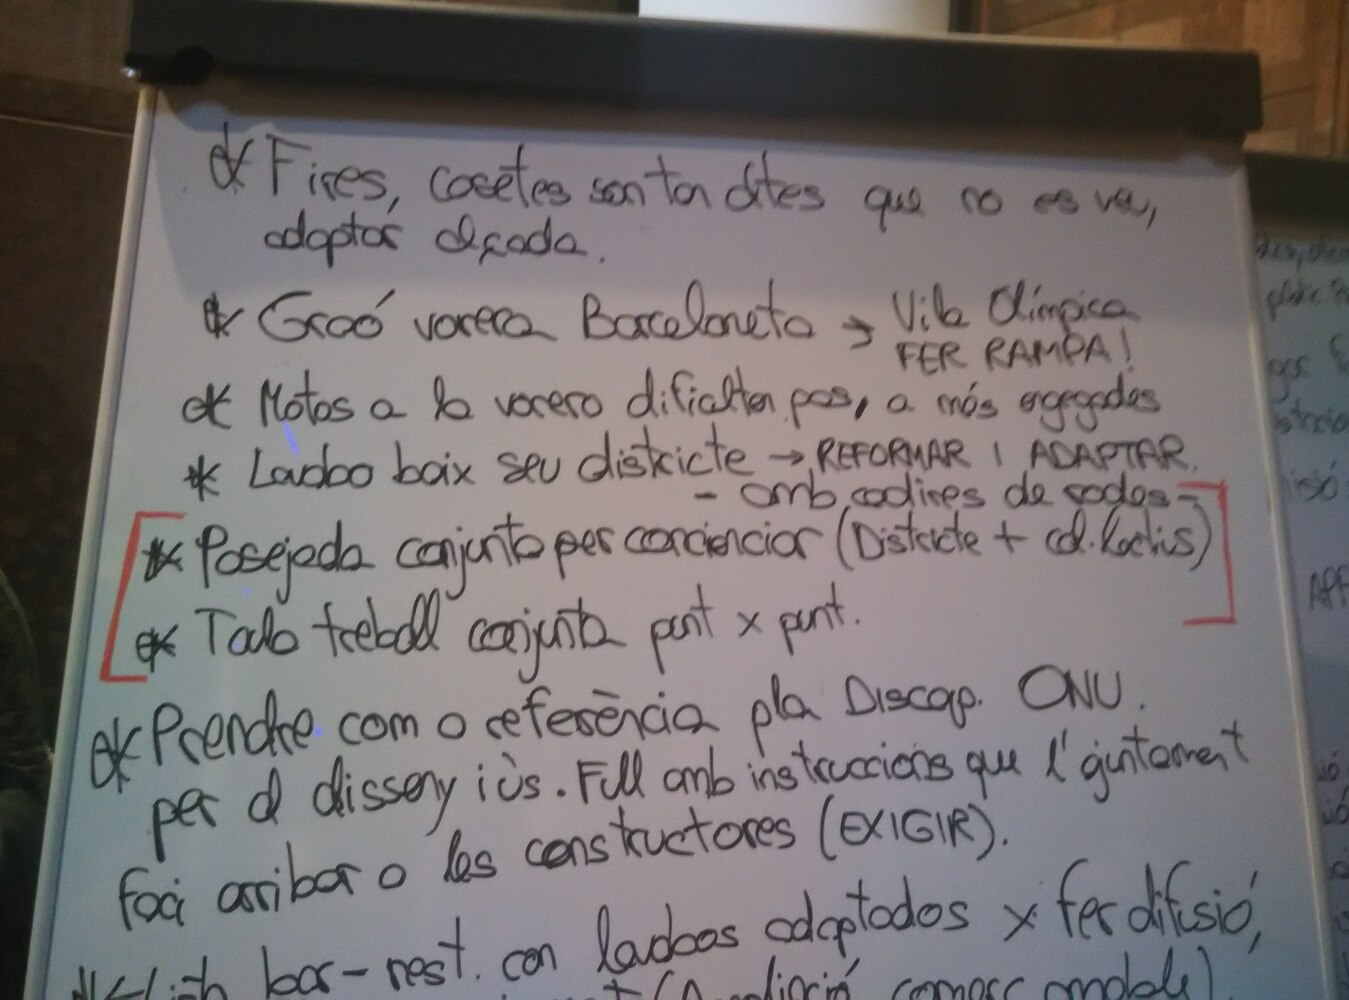 * Fires, casetes son tan altes que no es veu,
adaptar alçada.
* Graó vorera Barceloneta → Vila Olímpica
FER RAMPA!
* Motos a la vorera dificulten pas, a més engegades
* Lavabo baix seu districte → REFORMAR I ADAPTAR.
- amb cadires de rodes -
* Passejada conjunta per conscienciar (Districte + col·lectius)
* Taula treball conjunta punt x punt.
* Prendre com a referència pla Discap. ONU.
per al disseny i ús. Full amb instruccions que l'ajuntament
faci arribar a les constructores (EXIGIR).
bar-rest. con lavabos adaptados x fer difusió,